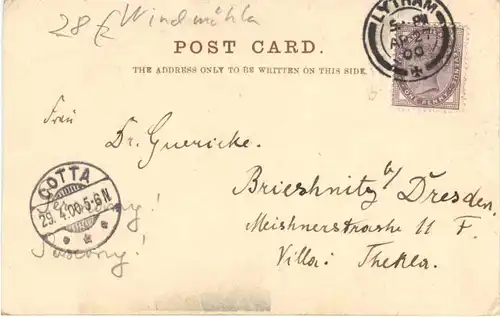 28 £ Windmühle
POST CARD.
THE ADDRESS ONLY TO BE WRITTEN ON THIS SIDE.
LYTHAM
5 PM
AP 27
00
ONE PENNY
Frau
Dr. Guericke.
Briesnitz b/ Dresden,
Meishnerstrashe 11 F.
Villa: Thekla.
COTTA
29.4.00.5-6N
Saxony!